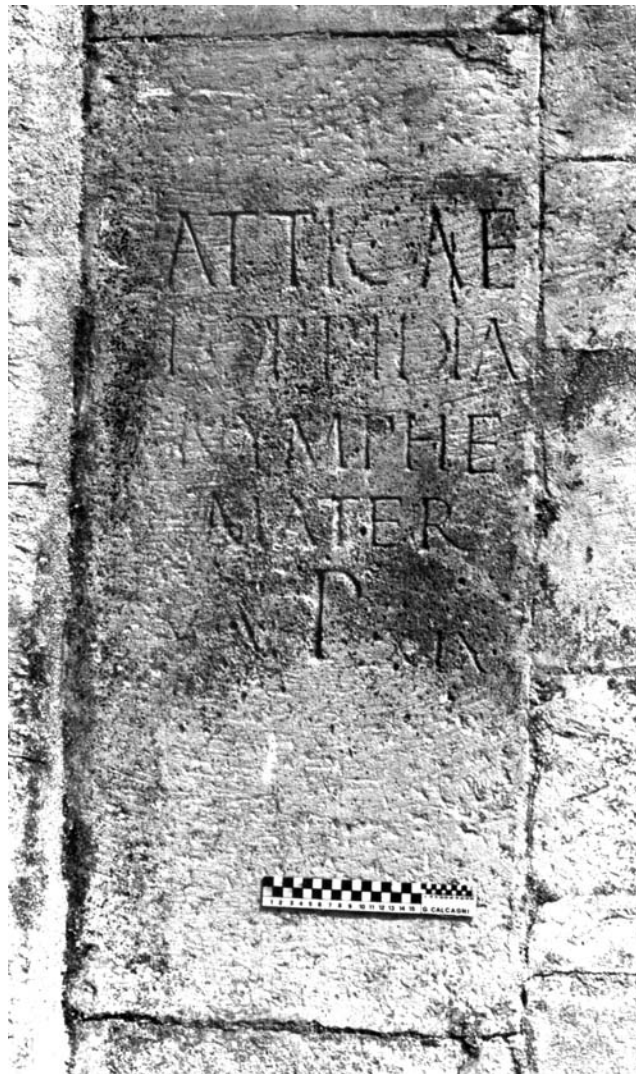 ATTICAE
POPPIDIA
NYMPHE
MATER
P
V A XIX
1 2 3 4 5 6 7 8 9 10 11 12 13 14 15 G CALCAGNI